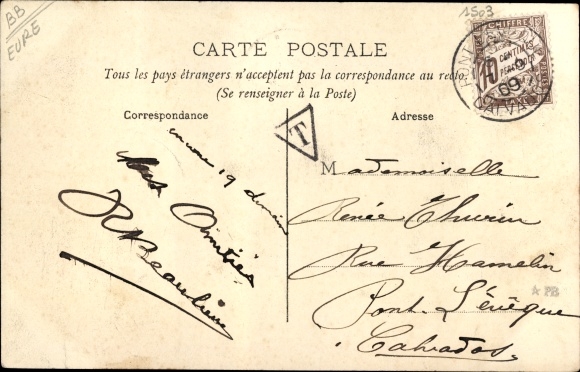 BB
EURE
1503
CARTE POSTALE
Tous les pays étrangers n'acceptent pas la correspondance au recto.
(Se renseigner à la Poste)
Correspondance
Adresse
T
CHIFFRE
10 CENTIMES
À PERCEVOIR
09
CALVADOS
encore 19 demain
Amitiés
R Beaulieu
Mademoiselle
Renée Thurin
Rue Hamelin
Pont-l'Évêque
Calvados.
* PB